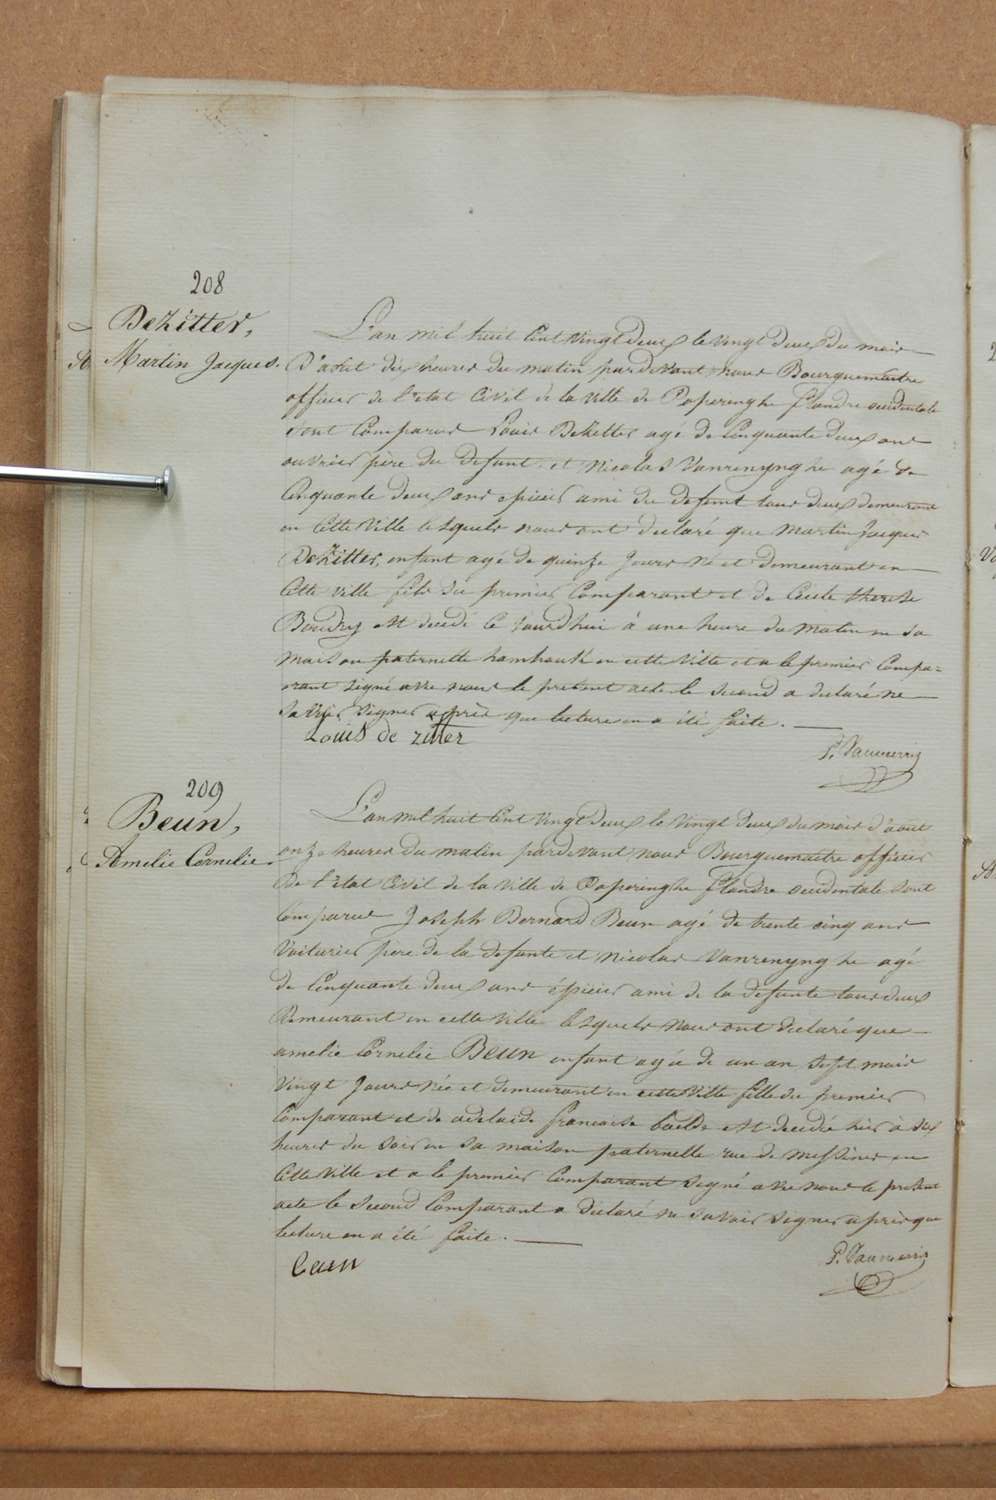 208
DeZitter,
Martin Jacques.
L'an mil huit cent vingt deux le vingt deux du mois
D'aout dix heures du matin pardevant nous Bourguemaitre
officier de l'etat Civil de la ville de Poperinghe flandre occidentale
sont Comparus Louis DeZitter agé de Cinquante deux ans
ouvrier père du defunt et Nicolas Vanrenynghe agé de
Cinquante deux ans epicier ami du defunt tous deux demeurans
en Cette Ville lesquels nous ont declaré que Martin Jacques
DeZitter, enfant agé de quinze Jours Né et demeurant en
Cette ville fils du premier Comparant et de Cecile therese
Boudry est decedé Ce Jourd'hui à une heure du Matin en sa
Maison paternelle en cette Ville et a le premier Compa=
rant signé avec nous le present acte le second a declaré ne
savoir signer après que lecture en a été faite.
Louis de zitter
P. Vanmerris
209
Beun,
Amelie Cornelie
L'an mil huit Cent Vingt deux le vingt deux du mois d'aout
onze heures du matin pardevant nous Bourguemaitre officier
De l'etat Civil de la ville de Poperinghe flandre occidentale sont
Comparus Joseph Bernard Beun agé de trente cinq ans
Voiturier père de la defunte et Nicolas Vanrenynghe agé
de Cinquante deux ans épicier ami de la defunte tous deux
Demeurant en cette Ville lesquels nous ont declaré que
amelie Cornelie Beun enfant agée de un an sept mois
Vingt Jours Née et demeurant en cette Ville fille du premier
Comparant et de adelaide francoise est decedée hier à six
heures du soir en sa maison paternelle rue de Messines en
Cette Ville et a le premier Comparant signé avec nous le présent
acte le second Comparant a declaré ne savoir signer après que
lecture en a été faite.
Beun
P. Vanmerris